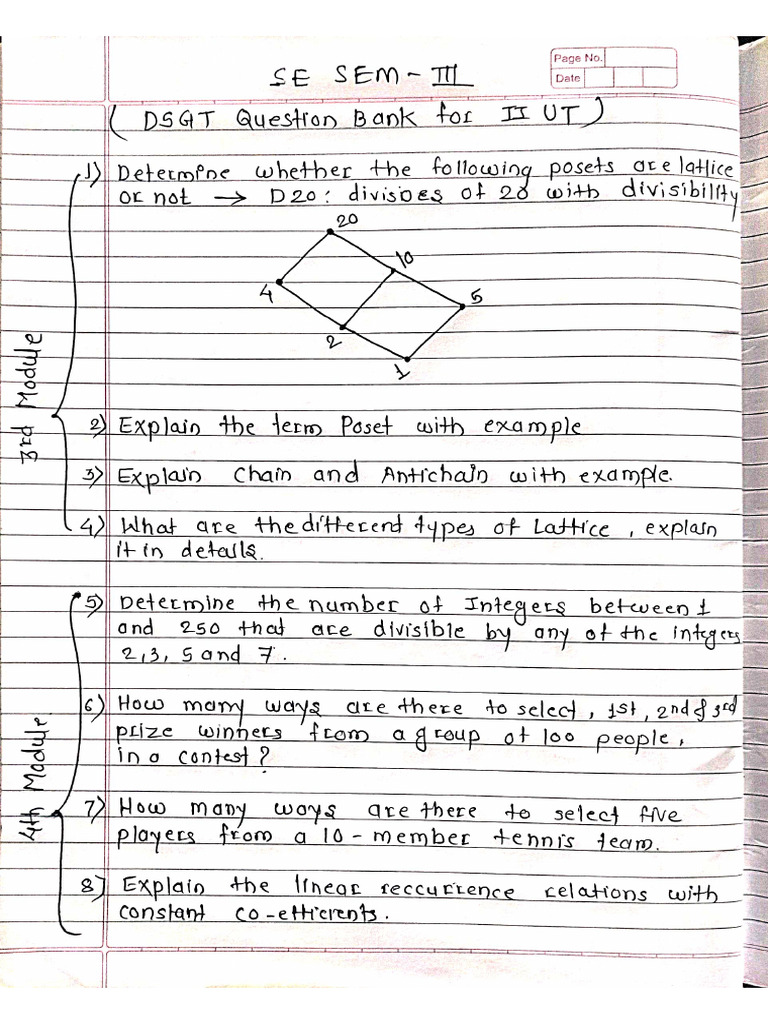 Page No.
Date
SE SEM - III
( DSGT Question Bank for II UT )
1) Determine whether the following posets are lattice
or not → D20: divisoes of 20 with divisibility
20
10
4
5
2
1
3rd Module
2) Explain the term Poset with example
3) Explain Chain and Antichain with example.
4) What are the different types of Lattice, explain
it in details.
5) Determine the number of Integers between 1
and 250 that are divisible by any of the integers
2, 3, 5 and 7.
6) How many ways are there to select, 1st, 2nd & 3rd
prize winners from a group of 100 people,
in a contest?
4th Module.
7) How many ways are there to select five
players from a 10-member tennis team.
8) Explain the linear reccurrence relations with
constant co-efficients.